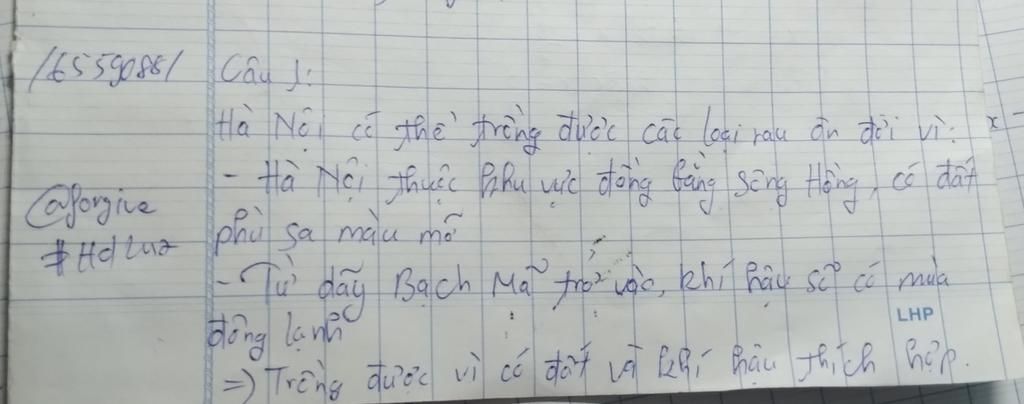 116559088/ Câu 1:
Hà Nội có thể trồng được các loại rau ôn đới vì:
- Hà Nội thuộc khu vực đồng bằng sông Hồng, có đất
@forgive phù sa màu mỡ
- Từ dãy Bạch Mã trở vào, khí hậu sẽ có mùa
LHP
đông lạnh
=) Trồng được vì có đất và khí hậu thích hợp.